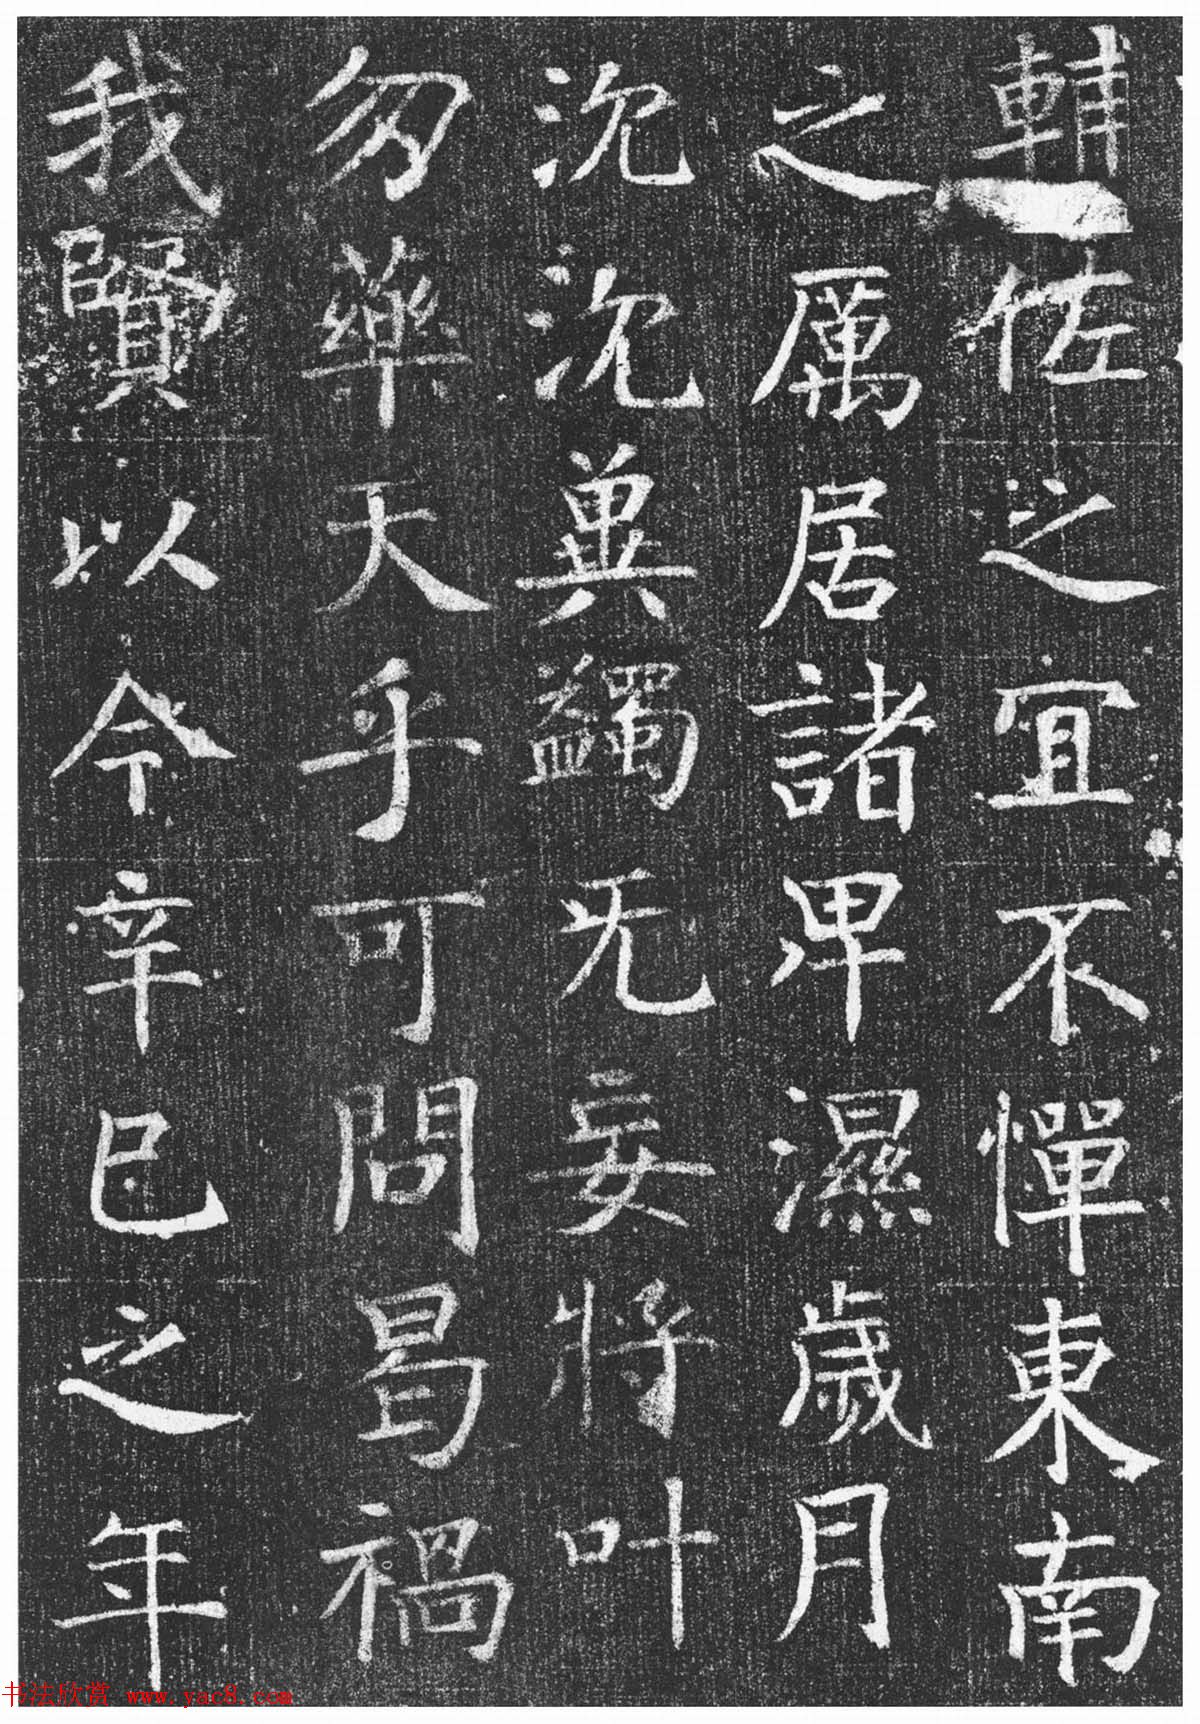 輔佐之宜不憚東南
之厲居諸卑濕歲月
沉沉兾蠲旡妄將叶
勿藥天乎可問曷禍
我賢以今辛巳之年
书法欣赏 www.yac8.com